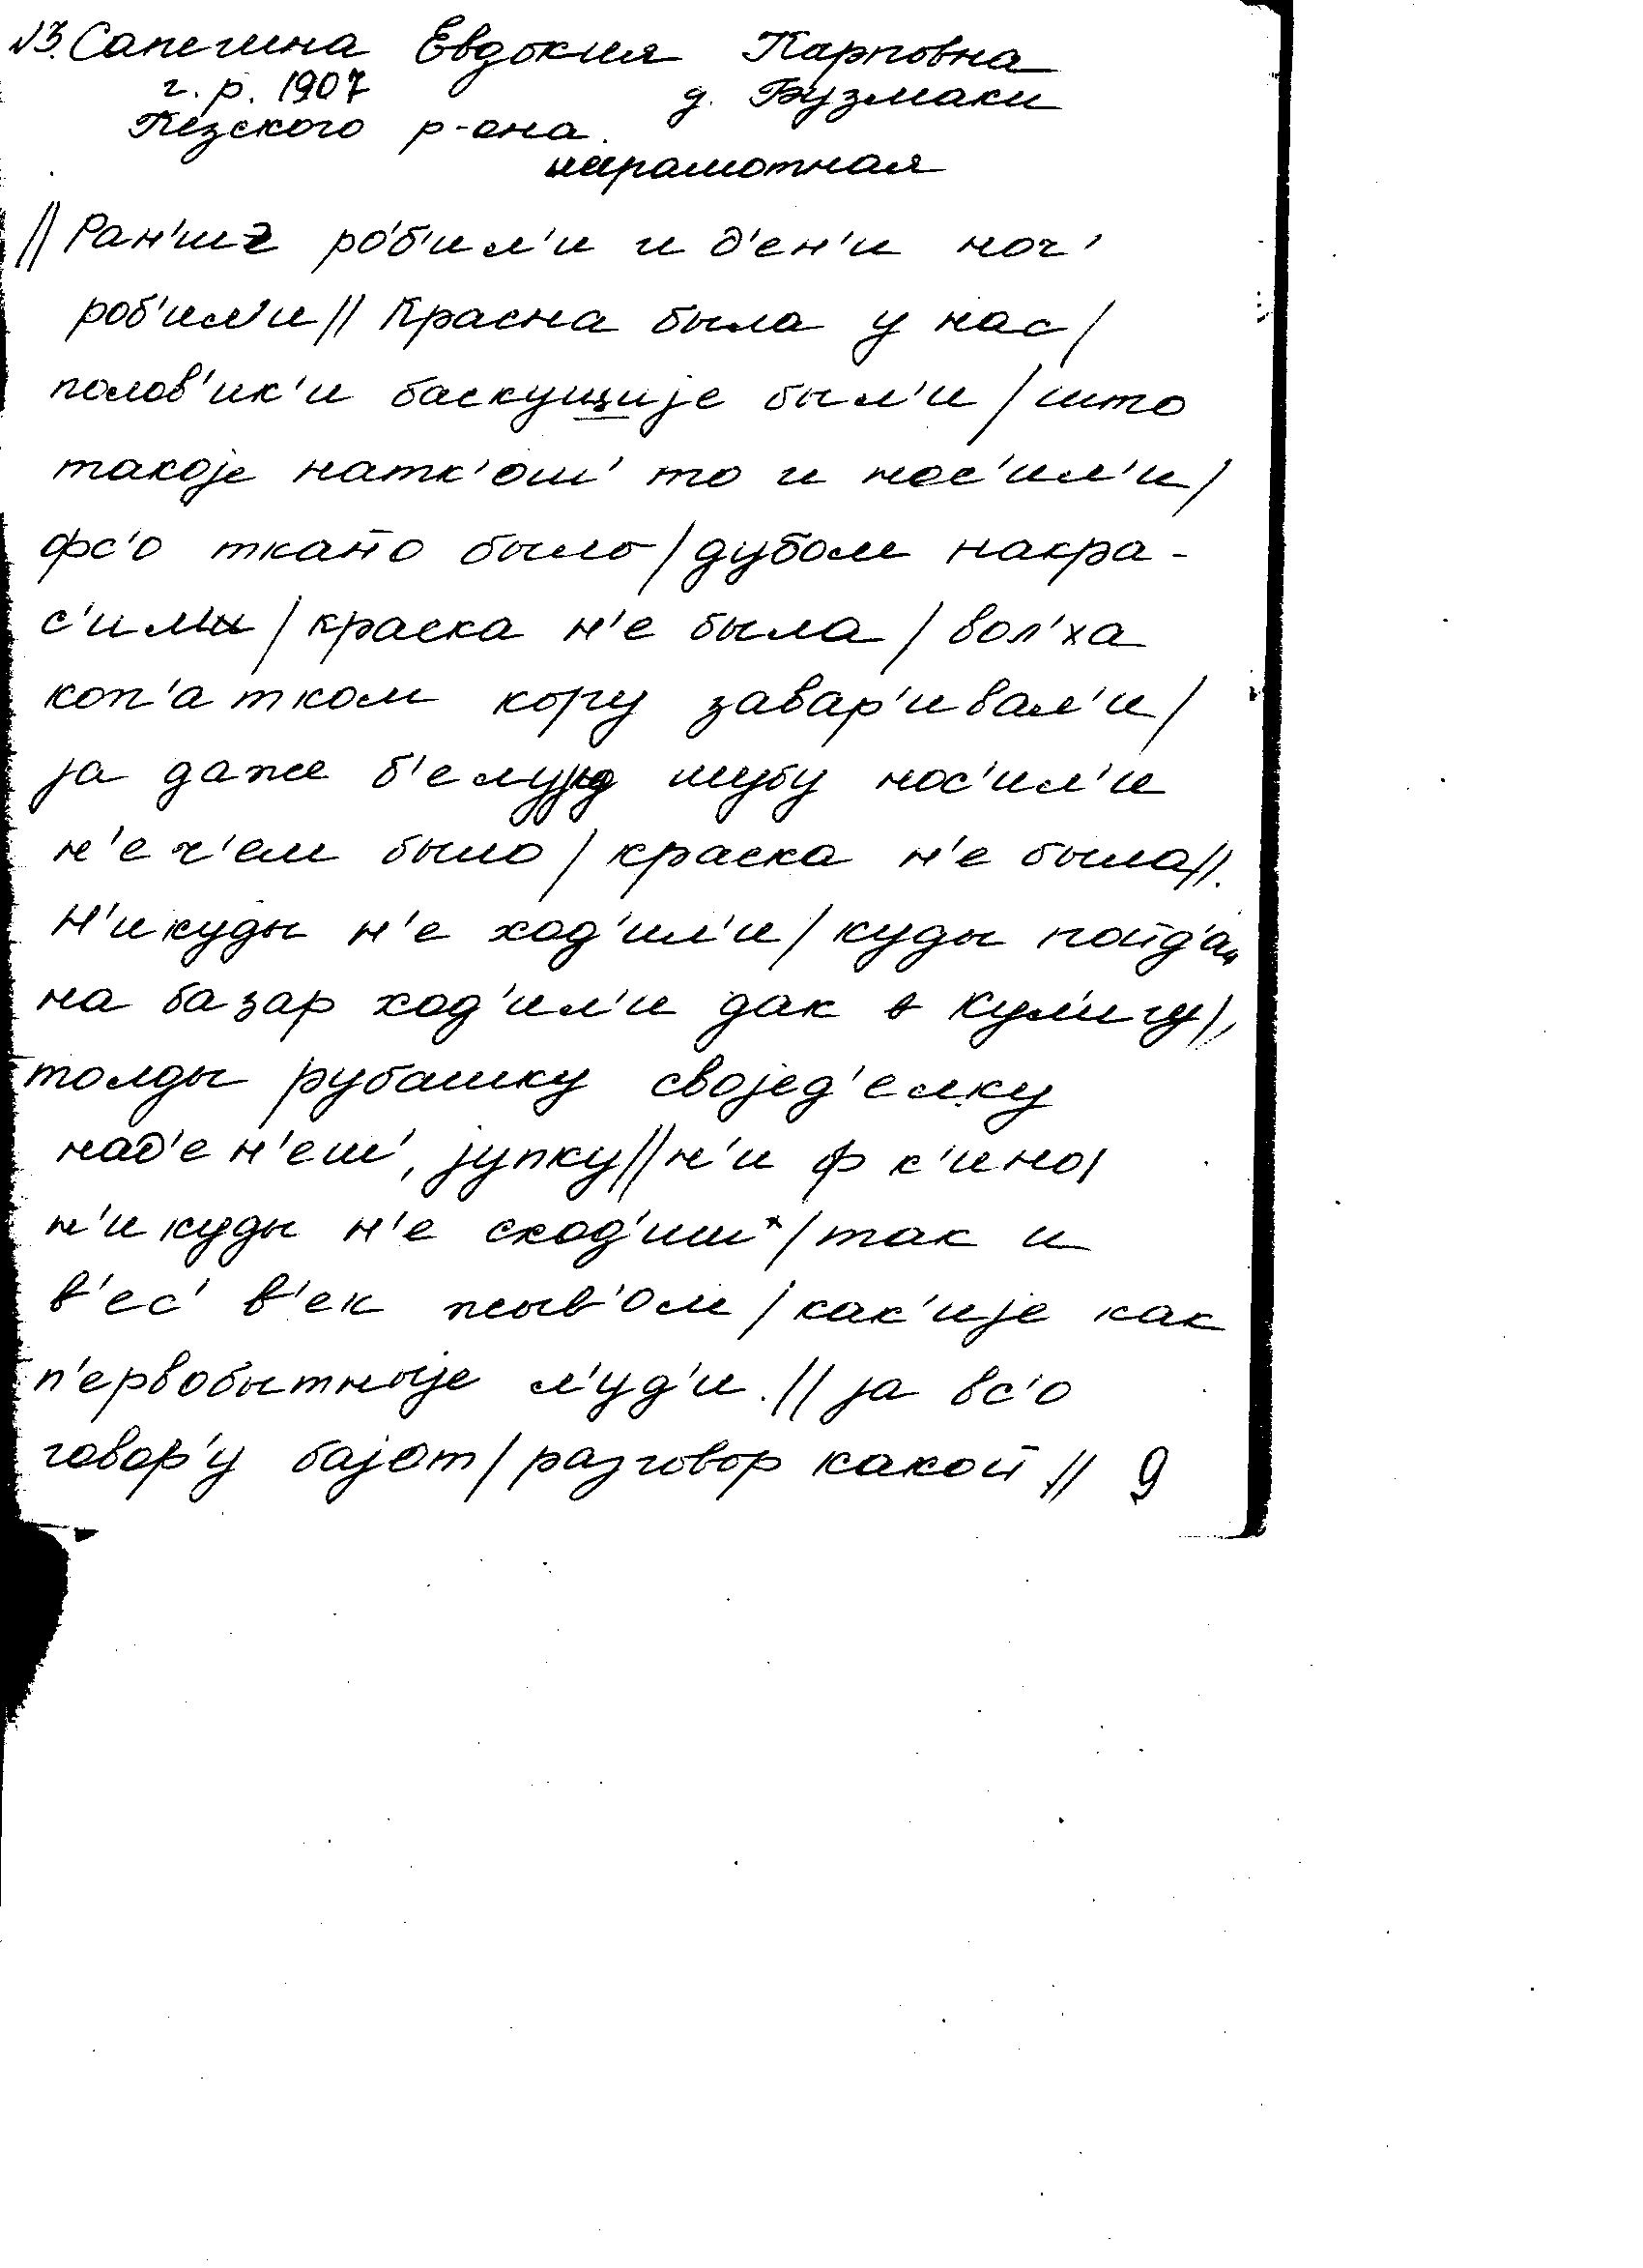 №3. Сапегина Евдокия Карповна
г. р. 1907 д. Бузмаки
Кезского р-она.
неграмотная
// Ран'ше роб'ил'и и д'ен'и ноч'
роб'ил'и // Красна была у нас /
полов'ик'и баскущије был'и / што
такоје натк'ош' то и нос'ил'и /
фс'о ткано было / дубом накра-
с'или / краска н'е была / вол'ха
коп'атком кору завар'ивал'и /
ја даже б'елују шубу нос'ил'и
н'еч'ем было / краска н'е была //.
Н'икуды н'е ход'ил'и / куды пойд'ош
на базар ход'ил'и дак в Кул'игу /,
толды рубашку својед'елку
над'ен'еш', јупку // н'и ф к'ино /
н'икуды н'е сход'иш' / так и
в'ес' в'ек жыв'ом / как'ије как
п'ервобытныје л'уд'и. // ја вс'о
говор'у бајот / разговор какой // 9